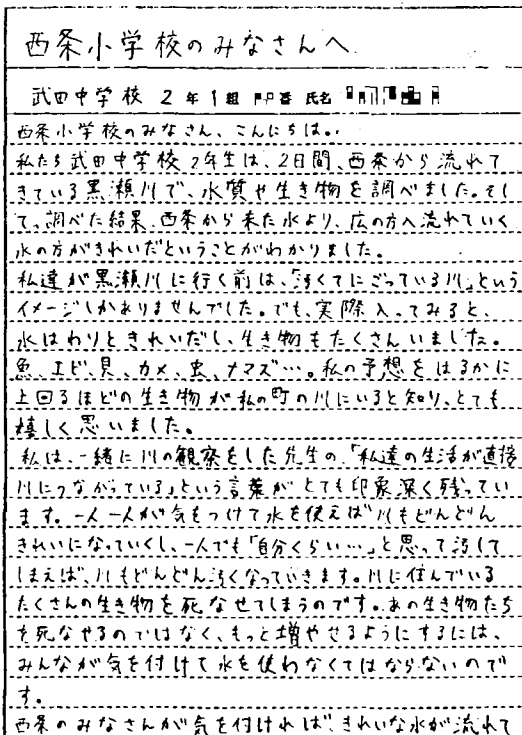 西条小学校のみなさんへ
武田中学校 2年1組 番 氏名
西条小学校のみなさん、こんにちは。
私たち武田中学校2年生は、2日間、西条から流れて
きている黒瀬川で、水質や生き物を調べました。そし
て、調べた結果、西条から来た水より、広の方へ流れていく
水の方がきれいだということがわかりました。
私達が黒瀬川に行く前は、「すくてにごっている川」という
イメージしかありませんでした。でも、実際入ってみると、
水はわりときれいだし、生き物もたくさんいました。
魚、エビ、貝、カメ、虫、ナマズ…。私の予想をはるかに
上回るほどの生き物が私の町の川にいると知り、とても
嬉しく思いました。
私は、一緒に川の観察をした先生の、「私達の生活が直接
川につながっている」という言葉がとても印象深く残ってい
ます。一人一人が気をつけて水を使えば川もどんどん
きれいになっていくし、一人でも「自分くらい…」と思って汚して
しまえば、川もどんどん汚くなっていきます。川に住んでいる
たくさんの生き物を死なせてしまうのです。あの生き物たち
を死なせるのではなく、もっと増やせるようにするには、
みんなが気を付けて水を使わなくてはならないので
す。
西条のみなさんが気を付ければ、きれいな水が流れて